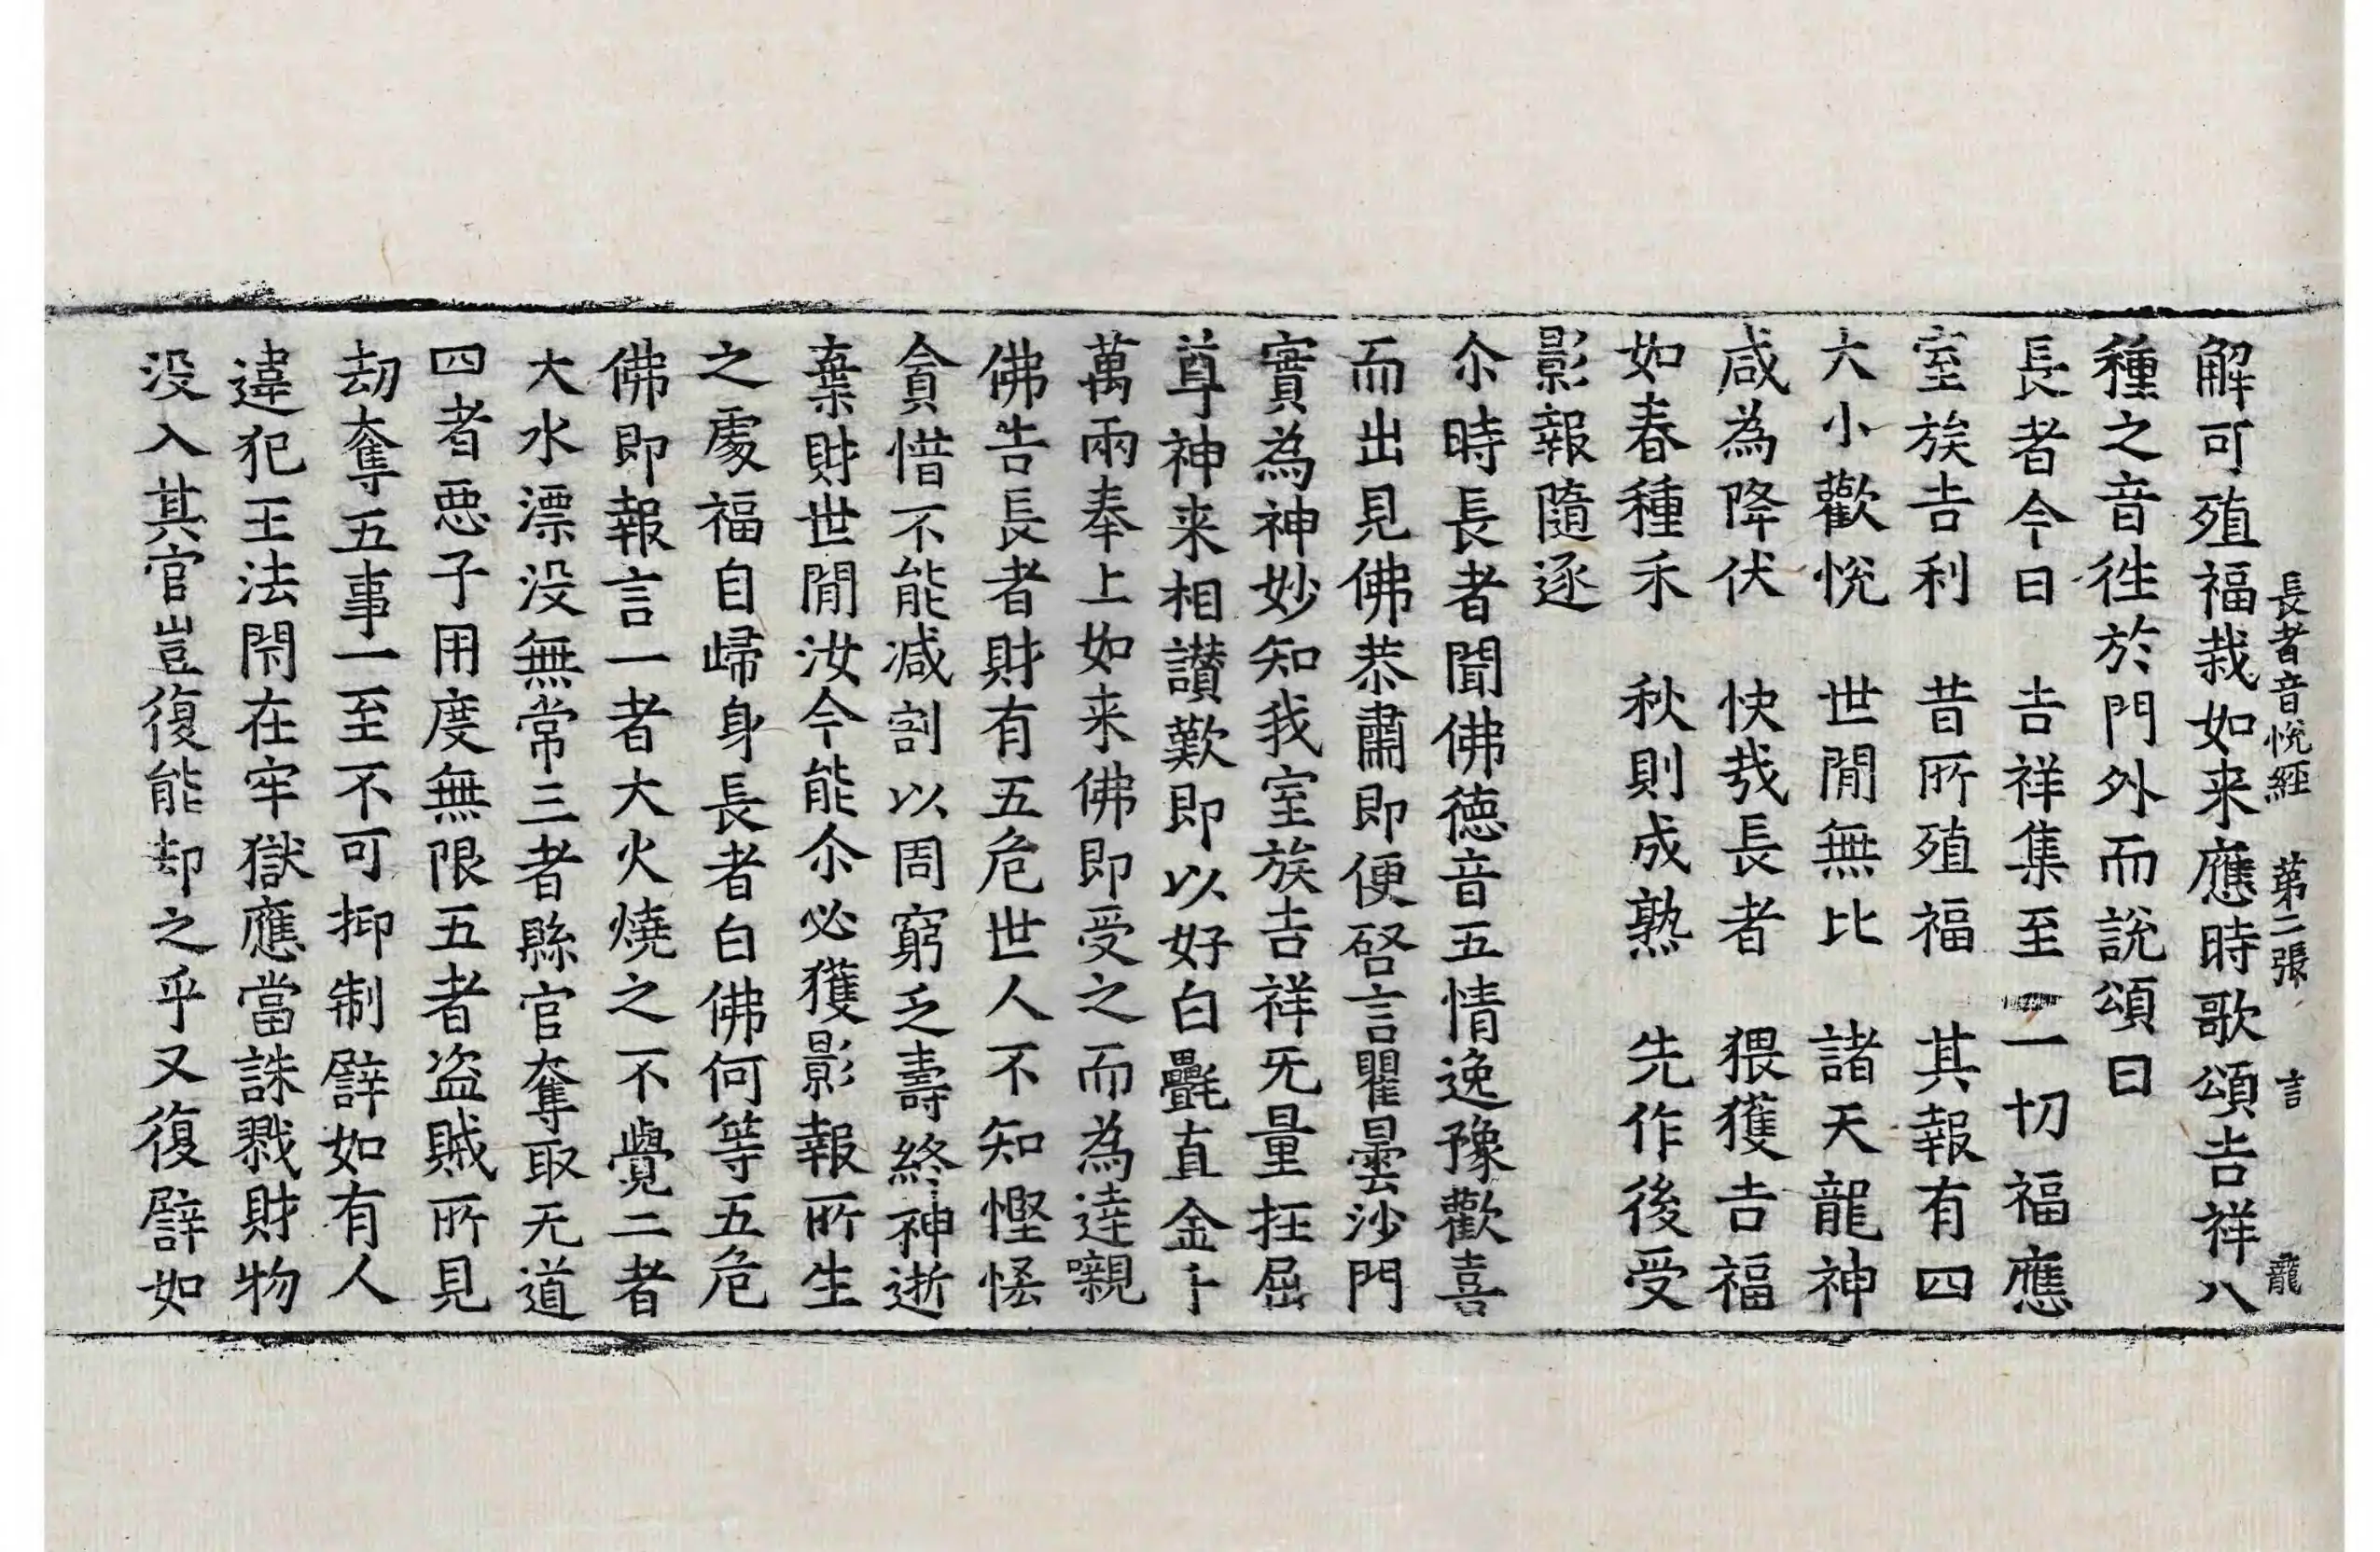 長者音悅經　第二張　言　龍
解可殖福栽如来應時歌頌吉祥八
種之音徃於門外而說頌曰
長者今日　吉祥集至　一切福應
室族吉利　昔所殖福　其報有四
大小歡悅　世閒無比　諸天龍神
咸為降伏　快哉長者　猥獲吉福
如春種禾　秋則成熟　先作後受
影報隨逐
尒時長者聞佛德音五情逸豫歡喜
而出見佛恭肅即便啓言瞿曇沙門
實為神妙知我室族吉祥无量抂屈
尊神来相讃歎即以好白㲲直金千
萬兩奉上如来佛即受之而為達嚫
佛告長者財有五危世人不知慳悋
貪惜不能减割以周窮乏壽終神逝
棄財世閒汝今能尒必獲影報所生
之處福自歸身長者白佛何等五危
佛即報言一者大火燒之不覺二者
大水漂没無常三者縣官奪取无道
四者惡子用度無限五者盗賊所見
劫奪五事一至不可抑制譬如有人
違犯王法閇在牢獄應當誅戮財物
没入其官豈復能却之乎又復譬如